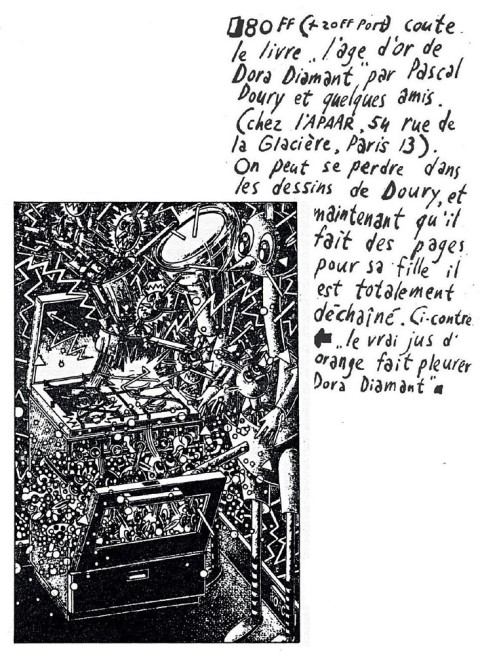 80 FF (+20 FF Port) coute
le livre „l'age d'or de
Dora Diamant" par Pascal
Doury et quelques amis.
(chez l'APAAR, 54 rue de
la Glacière, Paris 13).
On peut se perdre dans
les dessins de Doury, et
maintenant qu'il
fait des pages
pour sa fille il
est totalement
déchaîné. Ci-contre
„le vrai jus d'
orange fait pleurer
Dora Diamant"